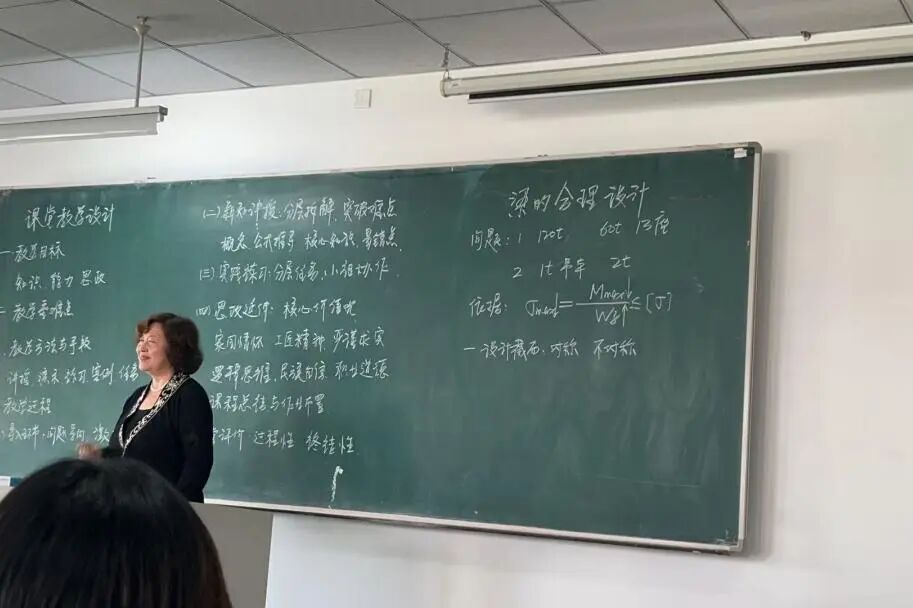 课堂教学设计
一 教学目标
知识 能力 思政
二 教学重难点
教学方法与手段
讲授 演示 练习 案例 任务
教学过程
导入环节: 问题导向 激
(二)新知讲授: 分层拆解 突破难点
概念 公式推导 核心知识 易错点
(三)实践练习: 分层任务, 小组协作
(四)思政延伸: 核心价值观
家国情怀 工匠精神 严谨求实
逻辑思维, 民族自信 职业道德
课程总结与作业布置
评价 过程性 终结性
梁的合理设计
问题: 1 120t 60t
2 1t 吊车 2t
依据: σmax = Mmax↓ / Wz↑ ≤ [σ]
一 设计截面: 对称 不对称